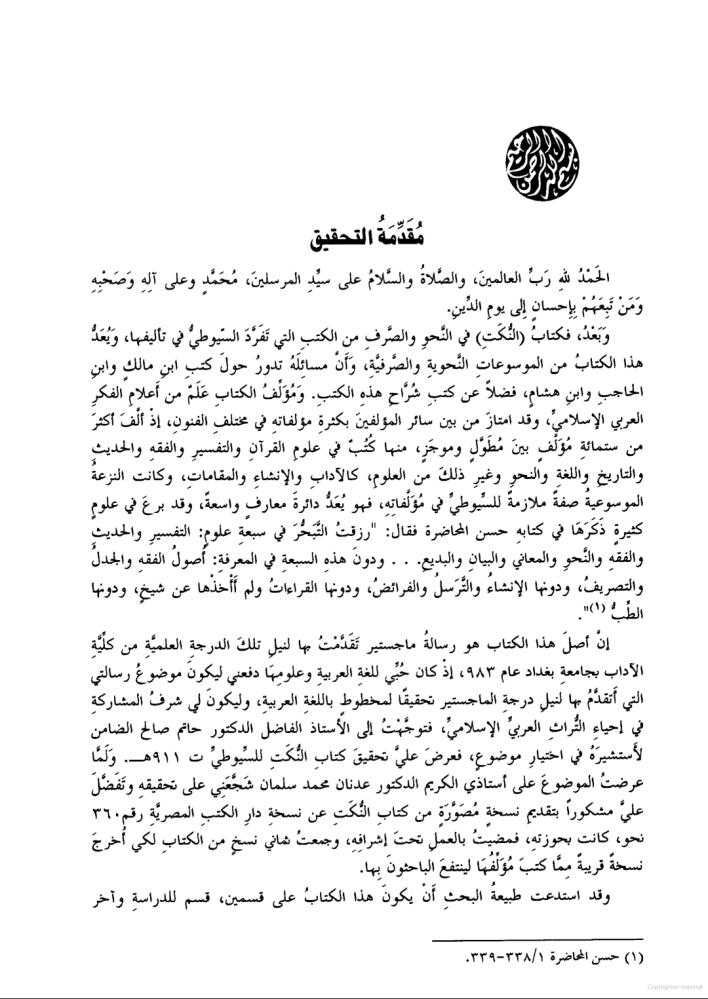 بسم الله الرحمن الرحيم
مُقَدِّمَةُ التحقيق
الحَمْدُ للهِ رَبِّ العالمينَ، والصَّلاةُ والسَّلامُ على سيِّدِ المرسلينَ، مُحَمَّدٍ وعلى آلِهِ وَصَحْبِهِ
وَمَنْ تَبِعَهُمْ بِإحسانٍ إلى يومِ الدِّينِ.
وَبَعْدُ، فكتابُ (النُّكَتِ) في النَّحوِ والصَّرفِ من الكتبِ التي تَفَرَّدَ السّيوطيُّ في تأليفها، وَيُعَدُّ
هذا الكتابُ من الموسوعاتِ النَّحويةِ والصَّرفيَّةِ، وَأَنْ مسائلَهُ تدورُ حولَ كتبِ ابنِ مالكٍ وابنِ
الحاجبِ وابنِ هشامٍ، فضلاً عن كتبِ شُرَّاحِ هذهِ الكتبِ. وَمُؤَلِّفُ الكتابِ عَلَمٌ من أعلامِ الفكرِ
العربي الإسلاميِّ، وقد امتازَ من بين سائر المؤلفينَ بكثرةِ مؤلفاته في مختلفِ الفنونِ، إذْ ألَّفَ أكثرَ
من ستمائةِ مُؤَلَّفٍ بينَ مُطَوَّلٍ وموجَزٍ، منها كُتُبٌ في علومِ القرآنِ والتفسيرِ والفقهِ والحديثِ
والتاريخِ واللغةِ والنحوِ وغيرِ ذلكَ من العلومِ، كالآدابِ والإنشاءِ والمقاماتِ، وكانت النزعةُ
الموسوعيةُ صفةً ملازمةً للسِّيوطيِّ في مُؤَلَّفاتِهِ، فهو يُعَدُّ دائرةَ معارفٍ واسعةً، وقد برعَ في علومٍ
كثيرةٍ ذَكَرَهَا في كتابهِ حسن المحاضرة فقال: "رزقتُ التَّبَحُّرَ في سبعةِ علومٍ: التفسيرِ والحديثِ
والفقهِ والنَّحوِ والمعاني والبيانِ والبديعِ. . . ودونَ هذهِ السبعةِ في المعرفةِ: أصولُ الفقهِ والجدلُ
والتصريفُ، ودونها الإنشاءُ والتَّرَسلُ والفرائضُ، ودونها القراءاتُ ولم أَأْخذْها عن شيخٍ، ودونها
الطِّبُّ (١)".
إنْ أصلَ هذا الكتاب هو رسالةُ ماجستير تَقَدَّمْتُ بها لنيلِ تلكَ الدرجةِ العلميَّةِ من كلِّيَّةِ
الآداب بجامعةِ بغداد عام ٩٨٣، إذْ كان حُبِّي للغةِ العربيةِ وعلومِهَا دفعني ليكونَ موضوعُ رسالتي
التي أَتقدَّمُ بها لنيلِ درجةِ الماجستيرِ تحقيقًا لمخطوطٍ باللغةِ العربيةِ، وليكونَ لي شرفُ المشاركةِ
في إحياءِ التُّراثِ العربيِّ الإسلاميِّ، فتوجَّهْتُ إلى الأستاذِ الفاضلِ الدكتور حاتم صالح الضامن
لأَستشيرَهُ في اختيارِ موضوعٍ، فعرضَ عليَّ تحقيقَ كتابِ النُّكَتِ للسِّيوطيِّ ت ٩١١هـ. وَلَمَّا
عرضتُ الموضوعَ على أستاذي الكريم الدكتور عدنان محمد سلمان شَجَّعَنِي على تحقيقهِ وَتَفَضَّلَ
عليَّ مشكوراً بتقديمِ نسخةٍ مُصَوَّرَةٍ من كتابِ النُّكَتِ عن نسخةِ دارِ الكتبِ المصريَّةِ رقم ٣٦٠
نحو، كانت بحوزتِهِ، فمضيتُ بالعملِ تحتَ إشرافِهِ، وجمعتُ شاني نسخٍ من الكتابِ لكي أُخرجَ
نسخةً قريبةً مِمَّا كتبَ مُؤَلِّفُهَا لينتفعَ الباحثونَ بِها.
وقد استدعت طبيعةُ البحثِ أَنْ يكونَ هذا الكتابُ على قسمين، قسم للدراسةِ وآخر
(١) حسن المحاضرة ٣٣٨/١-٣٣٩.
Copyrighted material